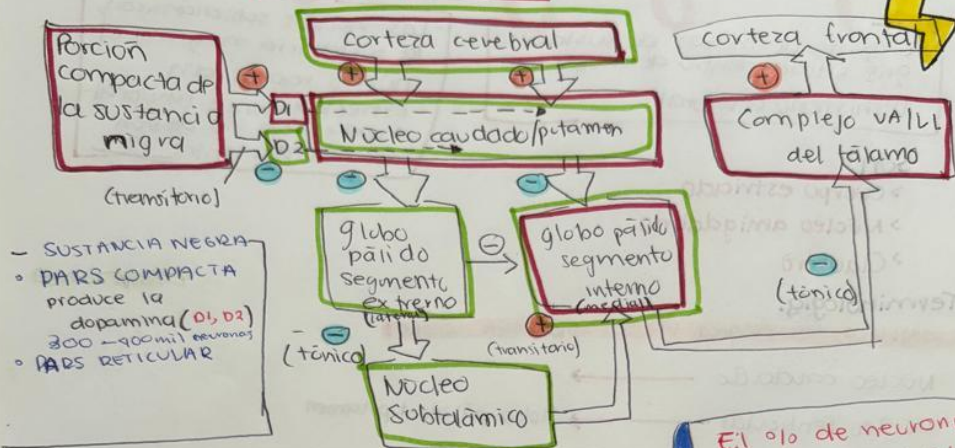 Porción
compacta de
la sustancia
nigra
(transitorio)
+
D1
D2
-
corteza cerebral
+
+
Núcleo caudado/putamen
-
-
globo
pálido
segmento
externo
(lateral)
-
globo pálido
segmento
interno
(medial)
-
(tónico)
+
(transitorio)
Núcleo
subtalámico
corteza frontal
+
Complejo VA/LL
del tálamo
-
(tónico)
- SUSTANCIA NEGRA
• PARS COMPACTA
produce la
dopamina (D1, D2)
300 - 400mil neuronas
• PARS RETICULAR
El % de neuron